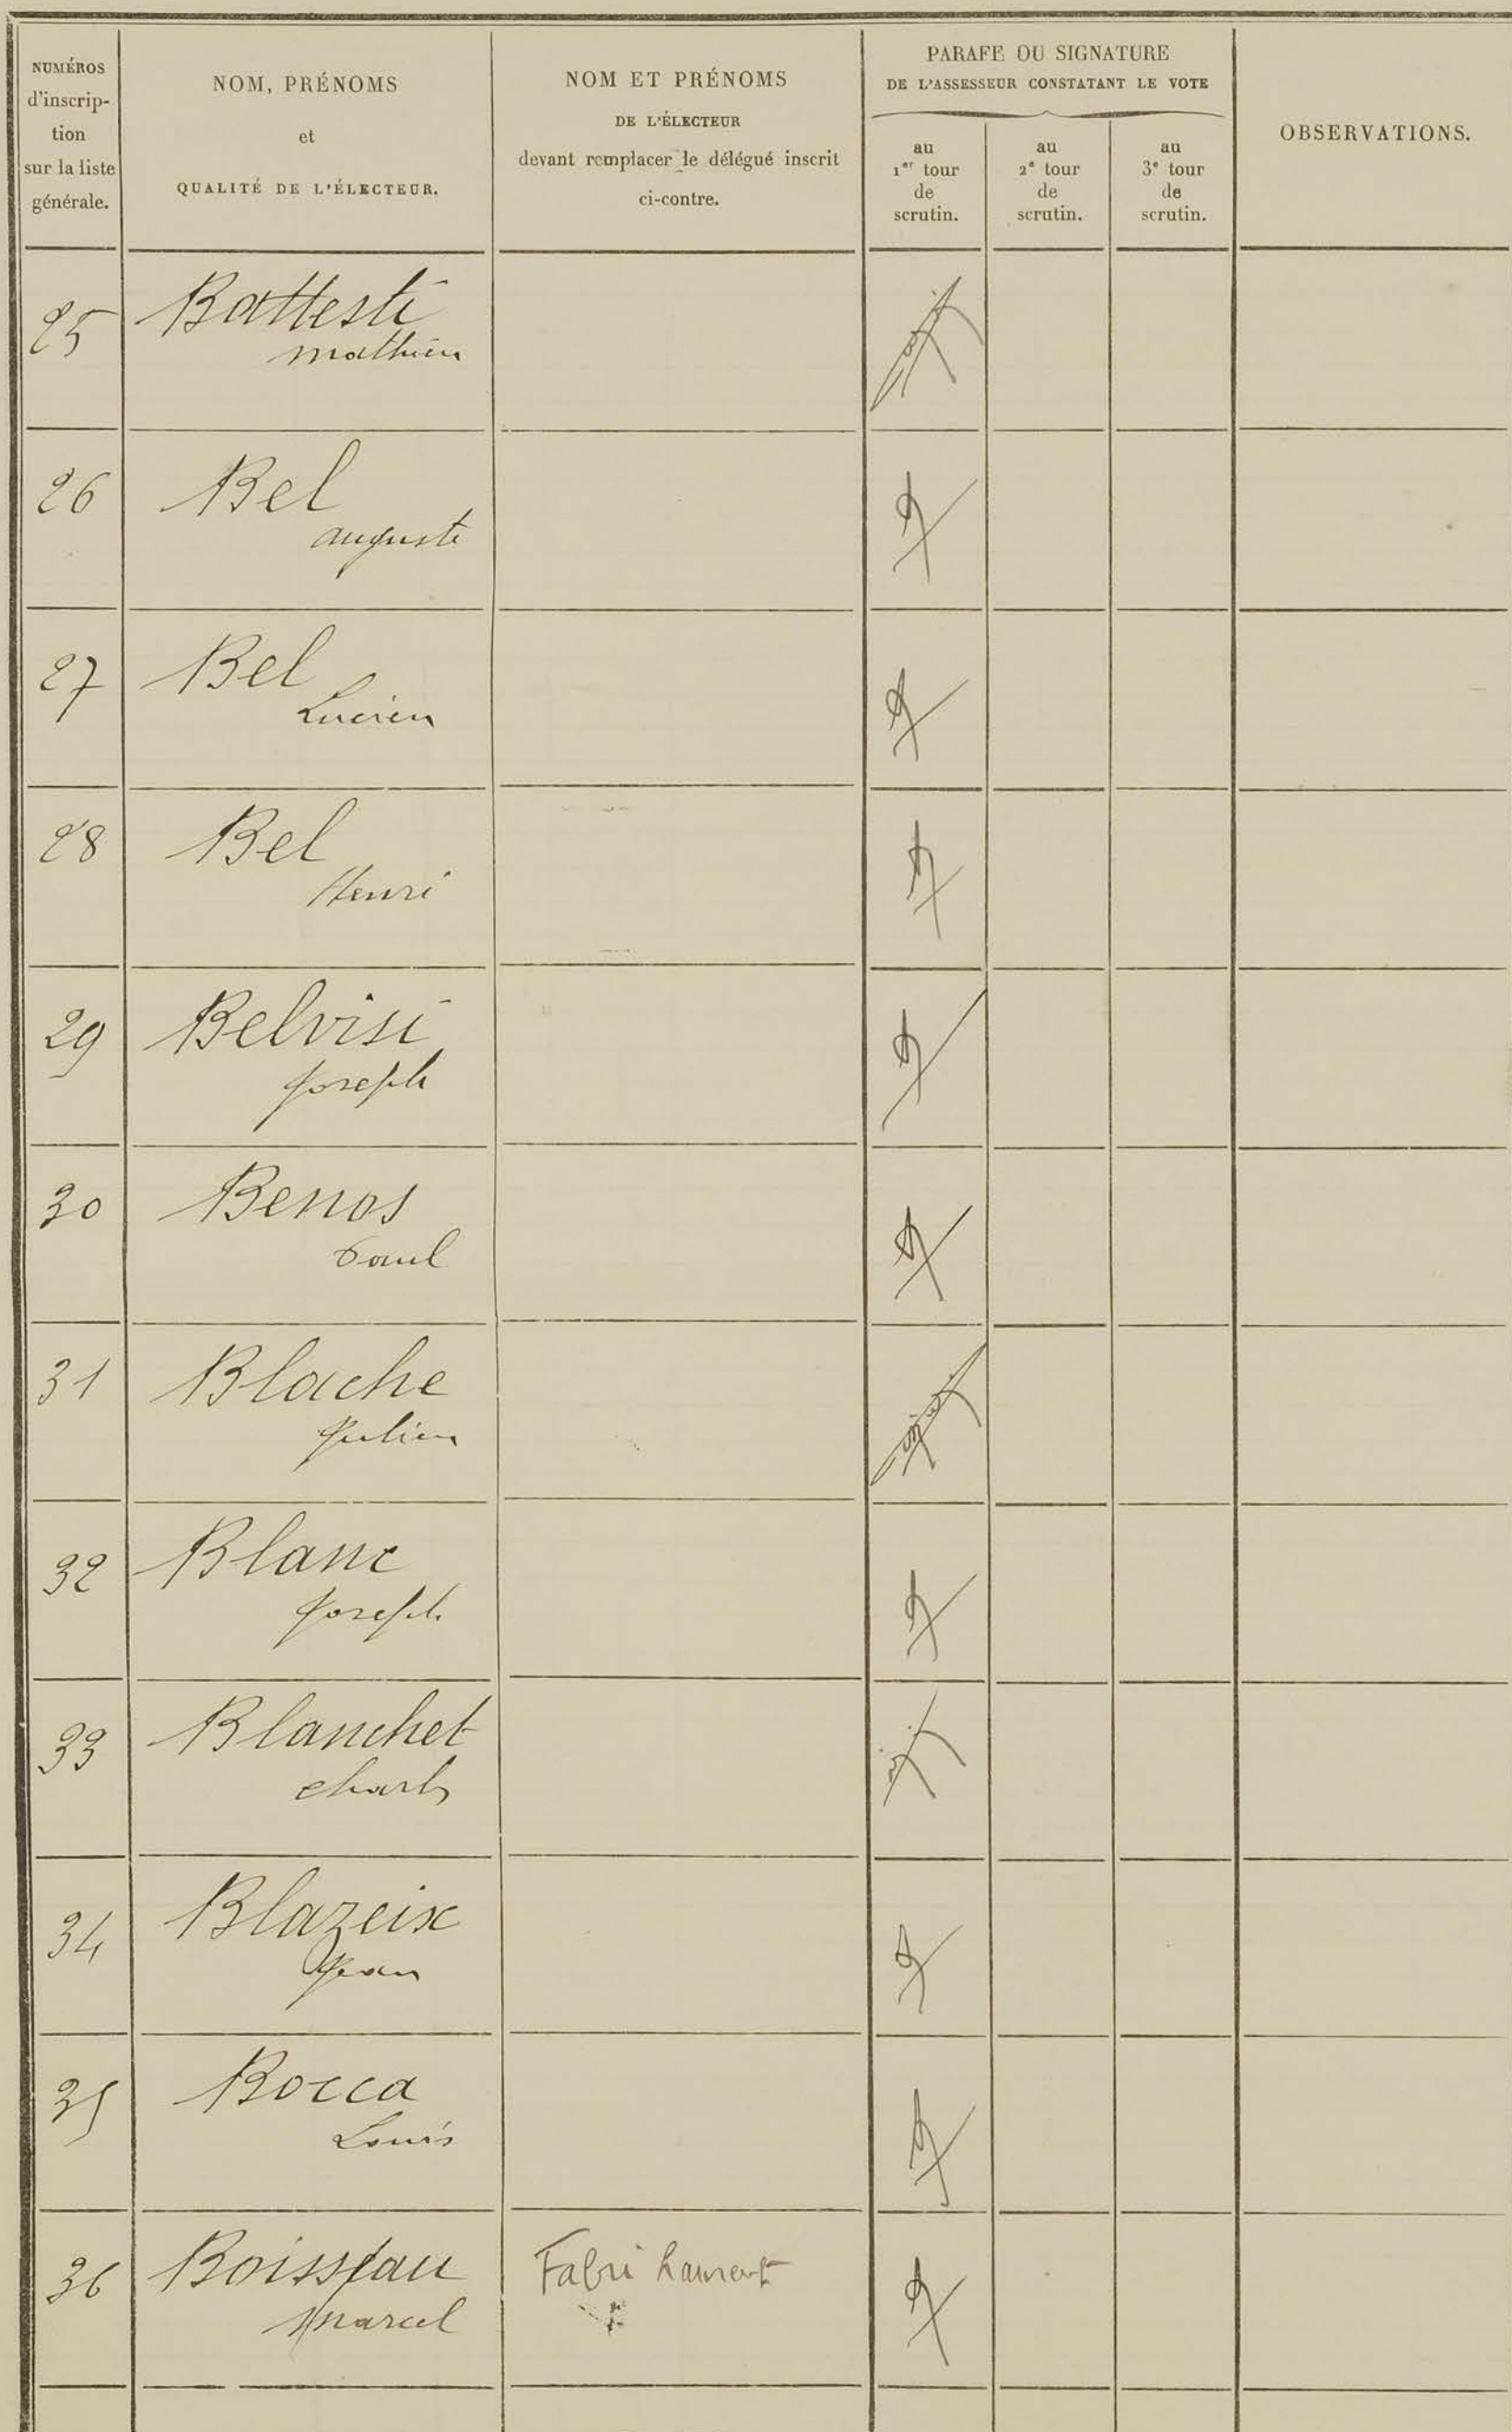 NUMÉROS
d'inscrip-
tion
sur la liste
générale.
NOM, PRÉNOMS
et
QUALITÉ DE L'ÉLECTEUR.
NOM ET PRÉNOMS
DE L'ÉLECTEUR
devant remplacer le délégué inscrit
ci-contre.
PARAFE OU SIGNATURE
DE L'ASSESSEUR CONSTATANT LE VOTE
au
1er tour
de
scrutin.
au
2e tour
de
scrutin.
au
3e tour
de
scrutin.
OBSERVATIONS.
25 Battesti
Mathieu
26 Bel
auguste
27 Bel
Lucien
28 Bel
Henri
29 Belvisi
Joseph
30 Benos
Paul
31 Blache
Julien
32 Blanc
Joseph
33 Blanchet
Charles
34 Blazeix
Jean
35 Bocca
Louis
36 Boisseau Fabri Laurent
Marcel